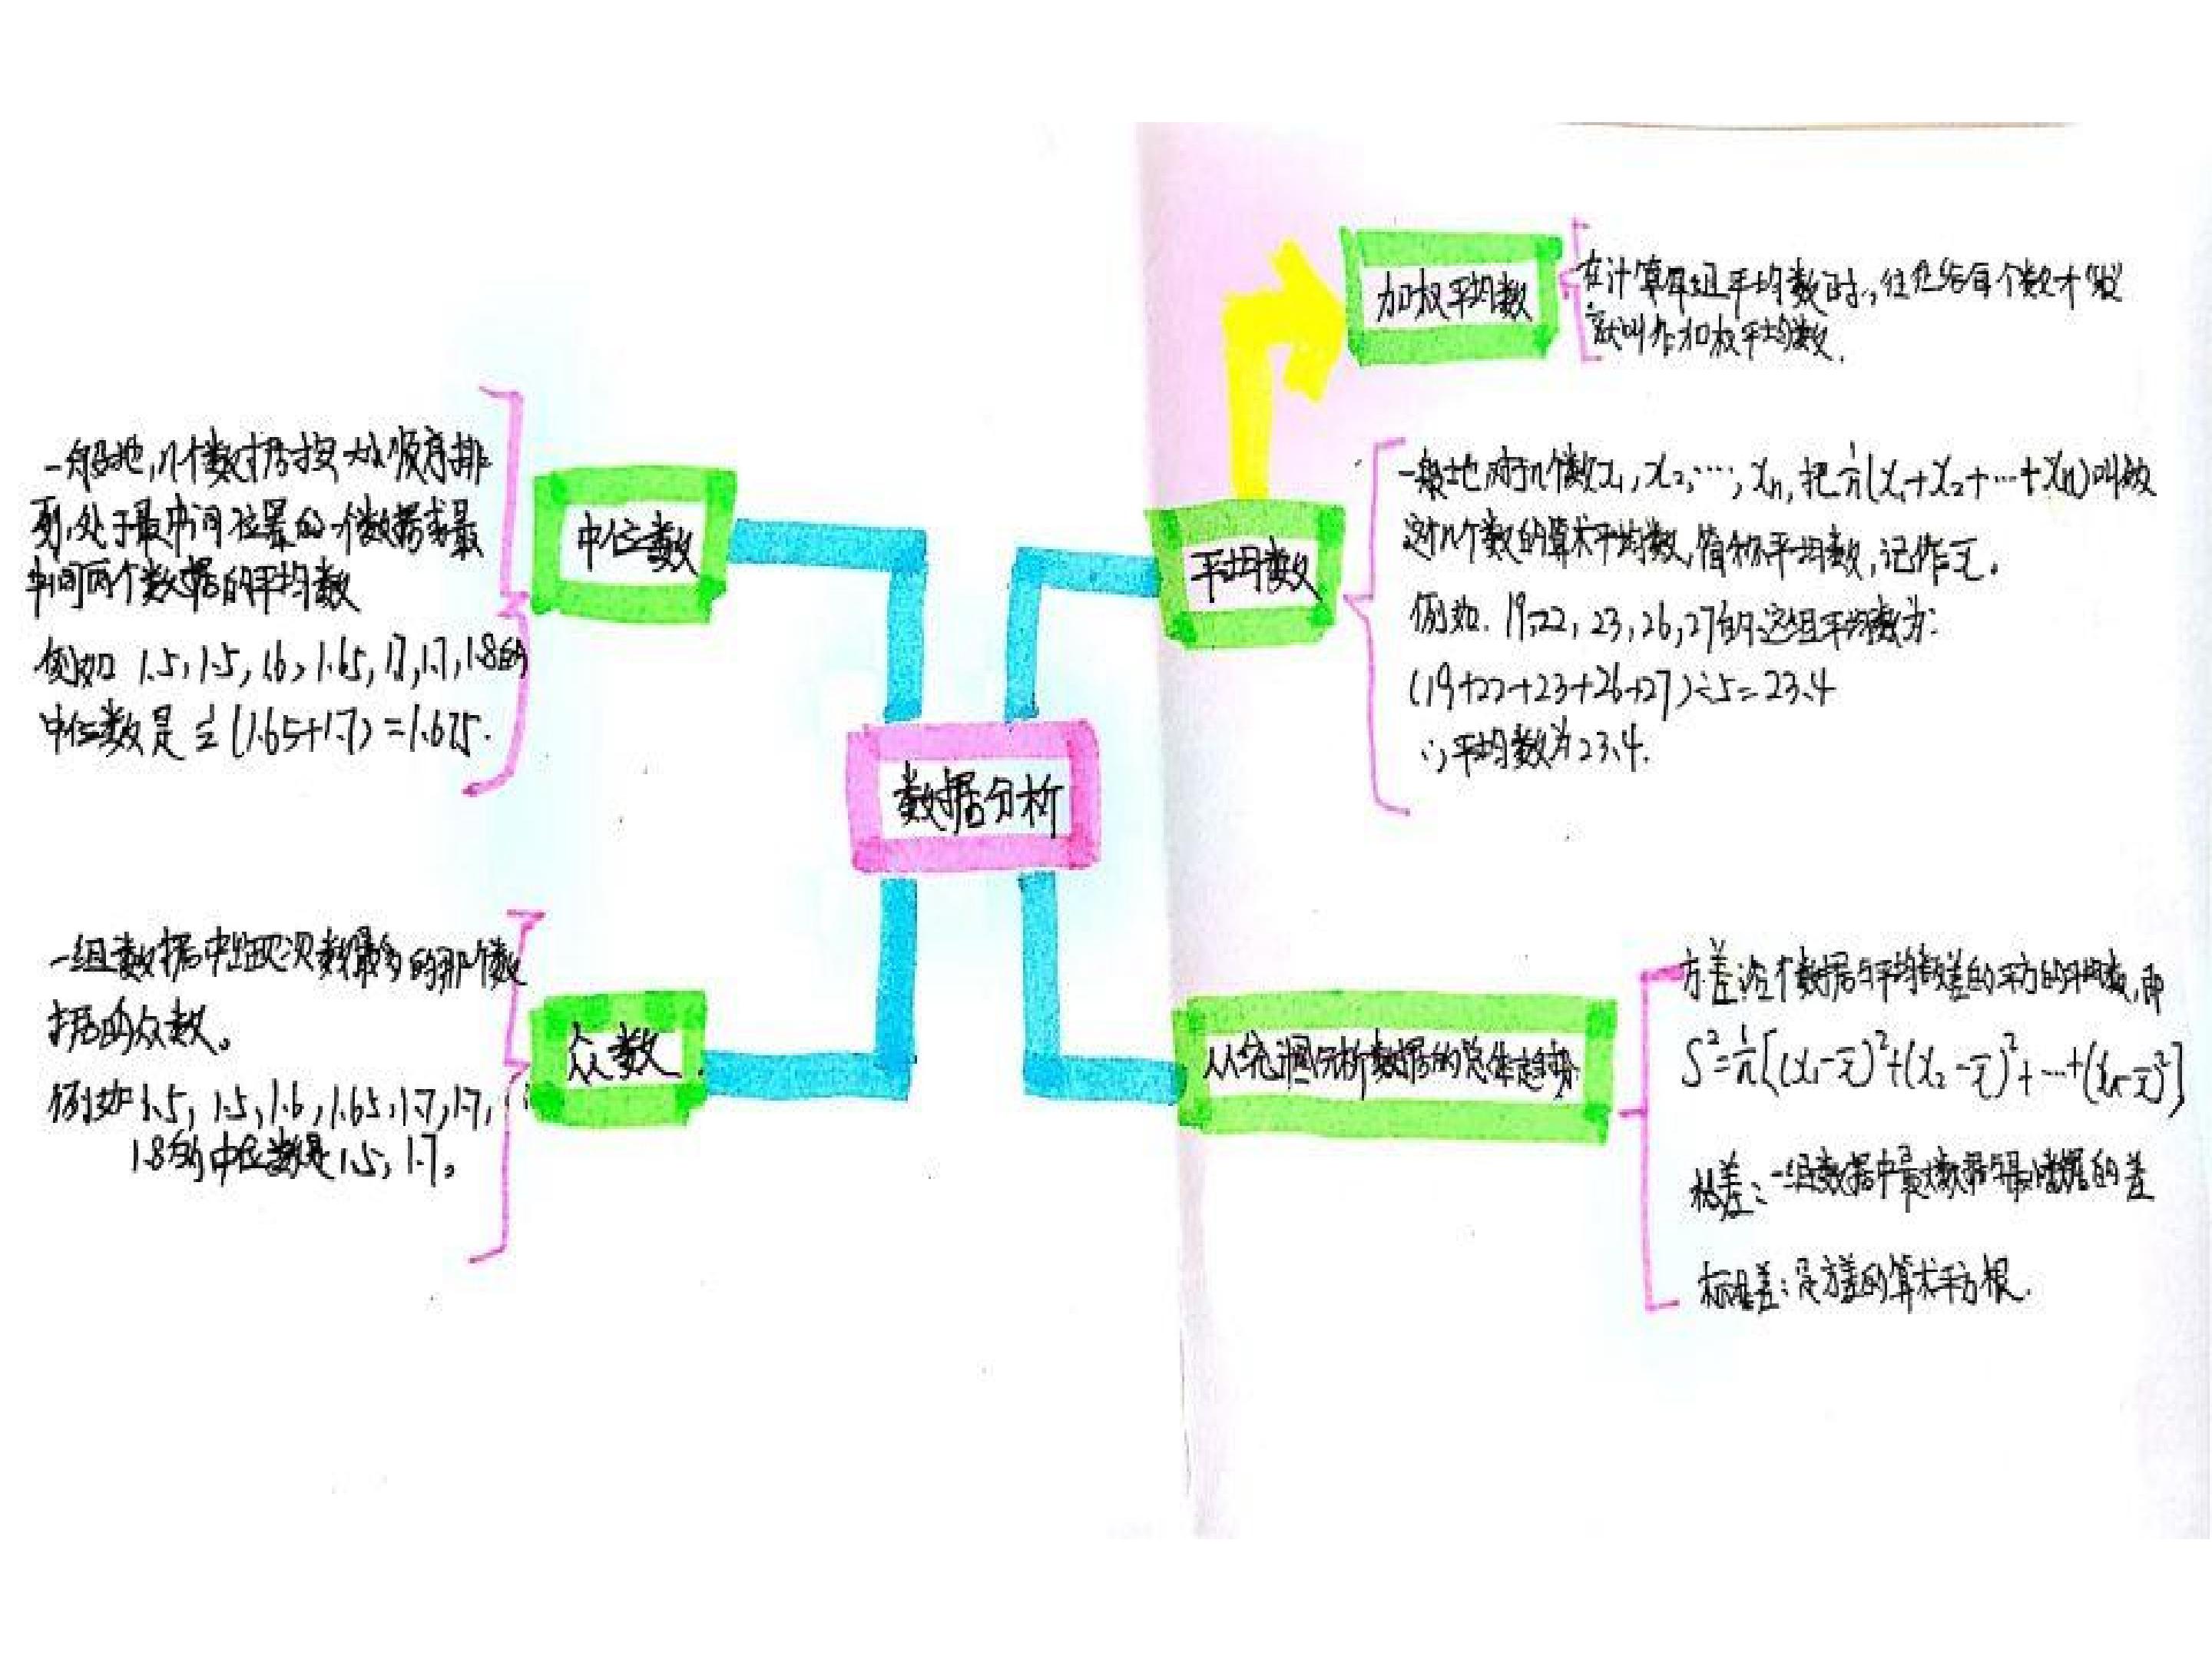 加权平均数
在计算每组平均数时,往往给每个数一个“权”
就叫作加权平均数.
中位数
一般地,n个数据按大小顺序排
列,处于最中间位置的一个数据或最
中间两个数据的平均数
例如 1.5,1.5,1.6,1.65,1.7,1.7,1.8的
中位数是½(1.65+1.7)=1.675.
平均数
一般地,对于n个数x₁,x₂,…,xₙ,把1/n(x₁+x₂+…+xₙ)叫做
这n个数的算术平均数,简称平均数,记作x̄.
例如.19,22,23,26,27的这组平均数为:
(19+22+23+26+27)÷5=23.4
∴平均数为23.4.
数据分析
众数
一组数据中出现次数最多的那个数
据的众数。
例如1.5,1.5,1.6,1.65,1.7,1.7,
1.8的中位数是1.5,1.7。
从统计图分析数据的总体趋势
方差:各个数据与平均数差的平方的平均数,即
S²=1/n[(x₁-x̄)²+(x₂-x̄)²+…+(xₙ-x̄)²]
极差:一组数据中最大数据与最小数据的差
标准差:是方差的算术平方根.